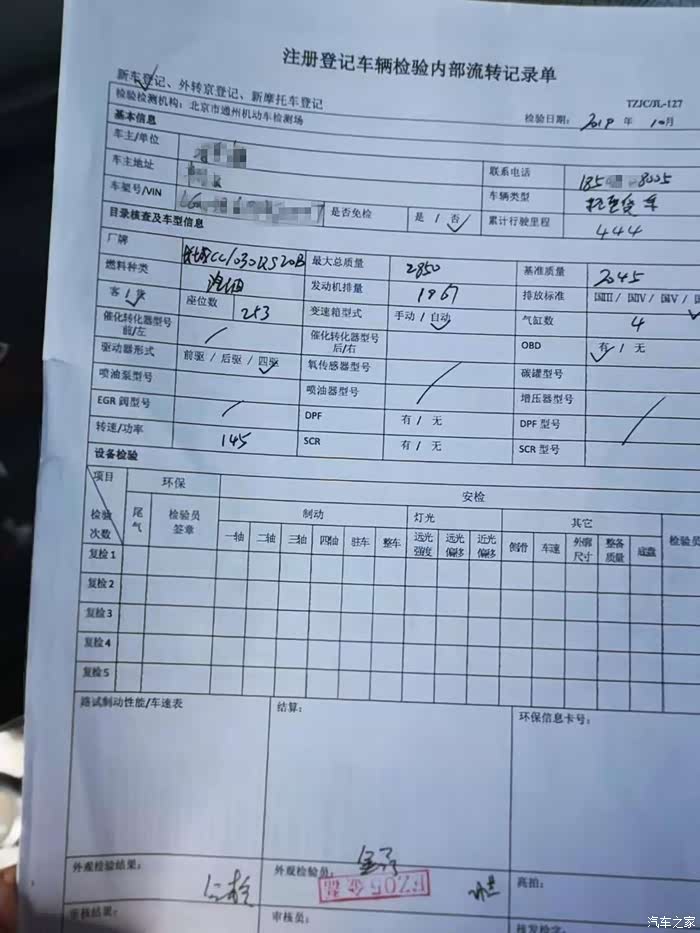 注册登记车辆检验内部流转记录单
新车登记、外转京登记、新摩托车登记
TZJC/JL-127
检验检测机构：北京市通州机动车检测场
检验日期： 2019 年 10月
基本信息
车主/单位
车主地址
联系电话 185 8005
车架号/VIN
是否免检 是 / 否
车辆类型 轻型货车
目录核查及车型信息
累计行驶里程 444
厂牌 长城CC1030QS20B 最大总质量 2850 基准质量 2045
燃料种类 汽油 发动机排量 1967 排放标准 国III / 国IV / 国V / 国
客 / 货 座位数 2+3 变速箱型式 手动 / 自动 气缸数 4
催化转化器型号前/左 催化转化器型号后/右 OBD 有 / 无
驱动器形式 前驱 / 后驱 / 四驱 氧传感器型号 碳罐型号
喷油泵型号 喷油器型号 增压器型号
EGR 阀型号 DPF 有 / 无 DPF 型号
转速/功率 145 SCR 有 / 无 SCR 型号
设备检验
项目 环保 安检
检验次数 尾气 检验员签章 制动 灯光 其它 检验员
一轴 二轴 三轴 四轴 驻车 整车 远光强度 远光偏移 近光偏移 侧滑 车速 外廓尺寸 整备质量 底盘
复检1
复检2
复检3
复检4
复检5
路试制动性能/车速表 结算： 环保信息卡号：
外观检验结果： 外观检验员： 亮拍：
审核结果： 审核员： 核发检字：
汽车之家